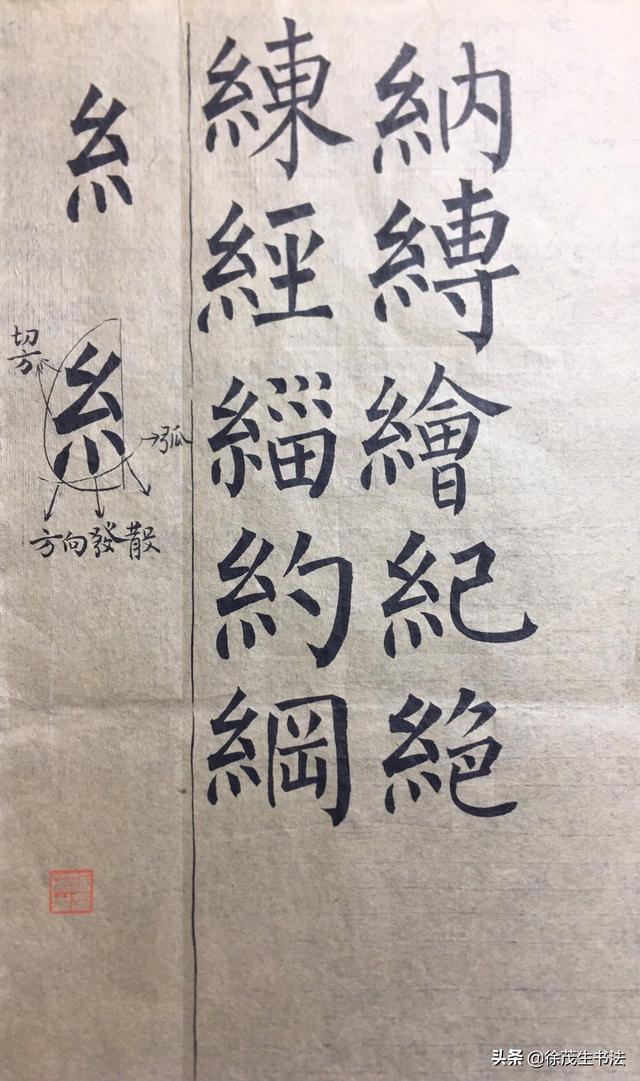 納縛繪紀絶
練經緇約綱
糹
糹
切方
弧
方向發散
头条 @徐茂生书法